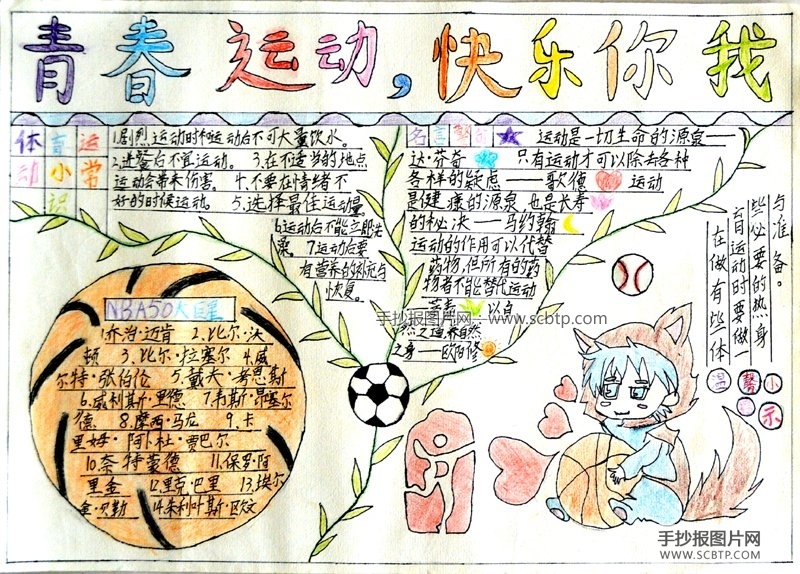 青春运动,快乐你我
体育运
动小常
识
1.剧烈运动时和运动后不可大量饮水。
2.进餐后不宜运动。3.在不适当的地点
运动会带来伤害。4.不要在情绪不
好的时候运动。5.选择最佳运动量
6.运动后不能立即洗
澡。7.运动后要
有营养的补充与
恢复。
名言
运动是一切生命的源泉——
达·芬奇 只有运动才可以除去各种
各样的疑虑——歌德 运动
是健康的源泉,也是长寿
的秘决——马约翰
运动的作用可以代替
药物,但所有的药
物者不能替代运动
以自
然之道,养自然
之身——欧阳修
在做有些体
育运动时要做一
些必要的热身
与准备。
温馨
小
示
NBA50大巨星
1.乔治·迈肯 2.比尔·沃
顿 3.比尔·拉塞尔 4.威
尔特·张伯伦 5.戴夫·考恩斯
6.威利斯·里德 7.韦斯·昂塞尔
德 8.摩西·马龙 9.卡
里姆·阿卜杜·贾巴尔
10.奈特蒙德 11.保罗·阿
里金 12.里克·巴里 13.埃尔
金·贝勒 14.朱利叶斯·欧文
手抄报图片网 www.scbtp.com
手抄报图片网
WWW.SCBTP.COM